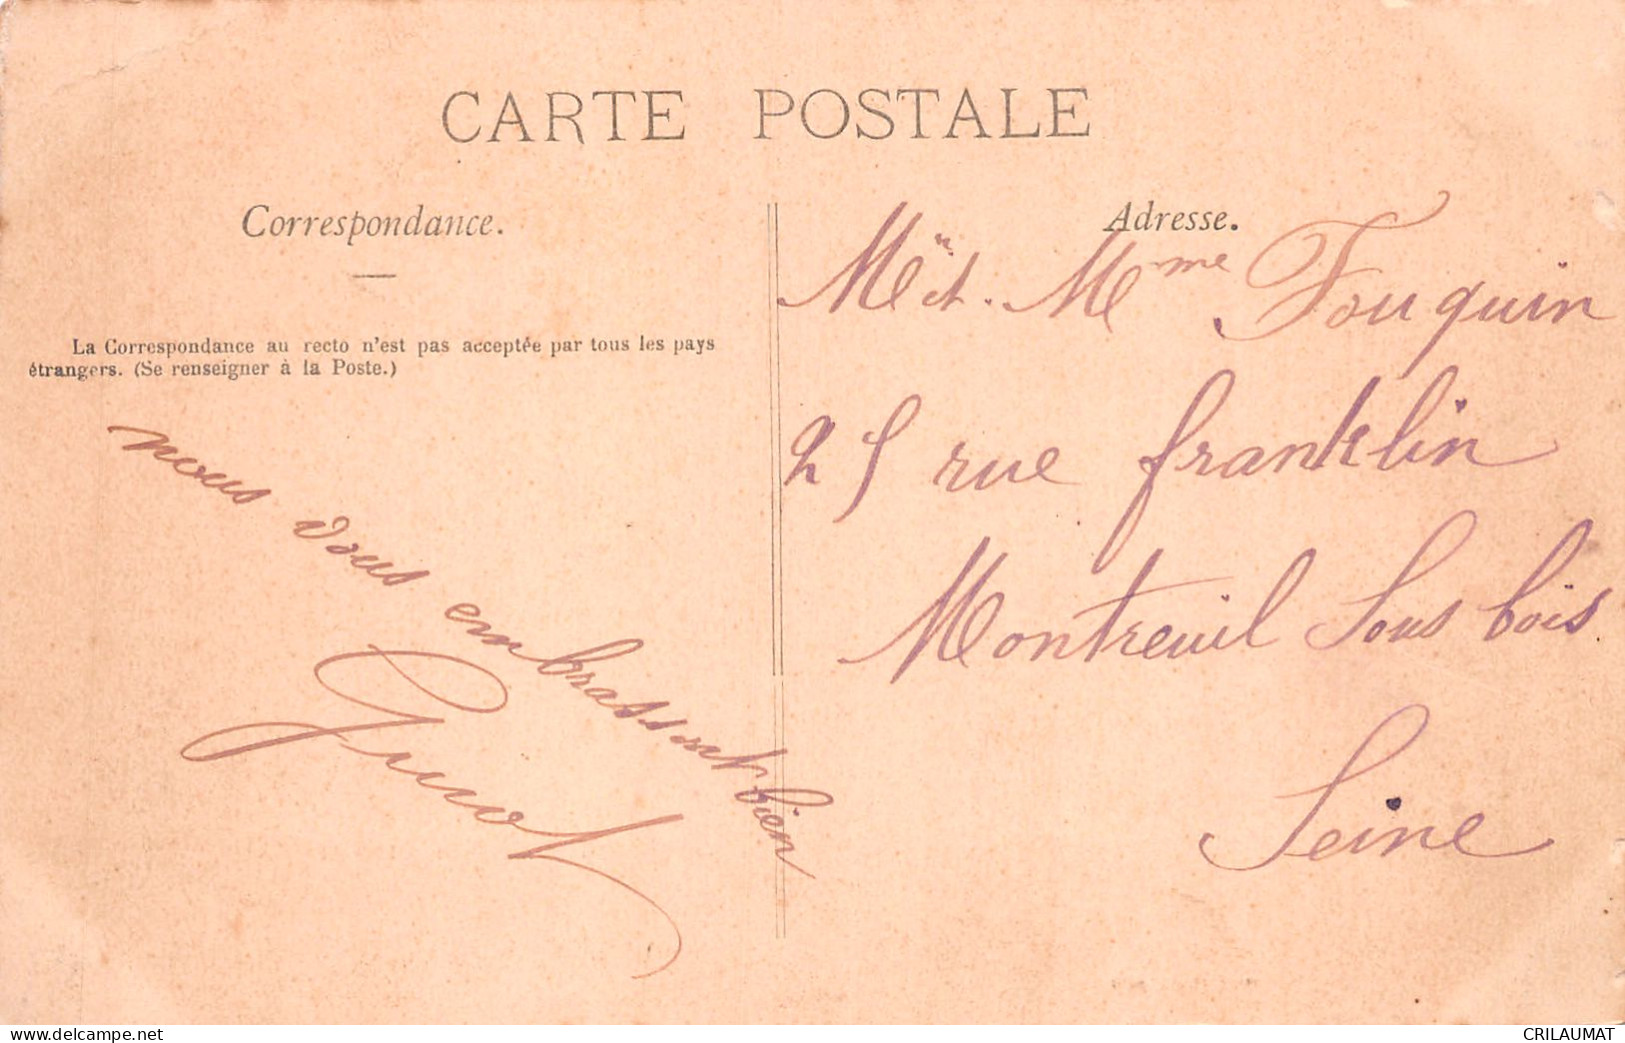 CARTE POSTALE
Correspondance.
La Correspondance au recto n'est pas acceptée par tous les pays
étrangers. (Se renseigner à la Poste.)
nous vous embrassont bien
Guiot
Adresse.
Mr et Mme Fouquin
25 rue franklin
Montreuil Sous bois
Seine
www.delcampe.net
CRILAUMAT